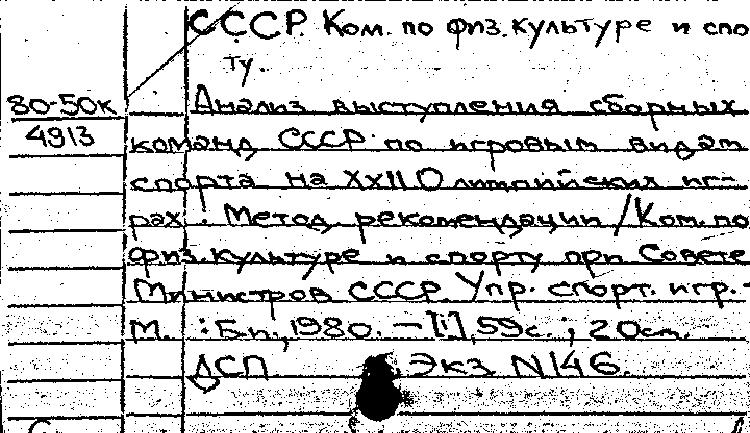 СССР. Ком. по физ. культуре и спо
ту.
80-50к
4913
Анализ выступления сборных
команд СССР по игровым видам
спорта на XXII Олимпийских иг-
рах : Метод. рекомендации / Ком. по
физ. культуре и спорту при Совете
Министров СССР. Упр. спорт. игр. -
М. : Б.и., 1980. — [1], 59с. ; 20см.
ДСП Экз N146.